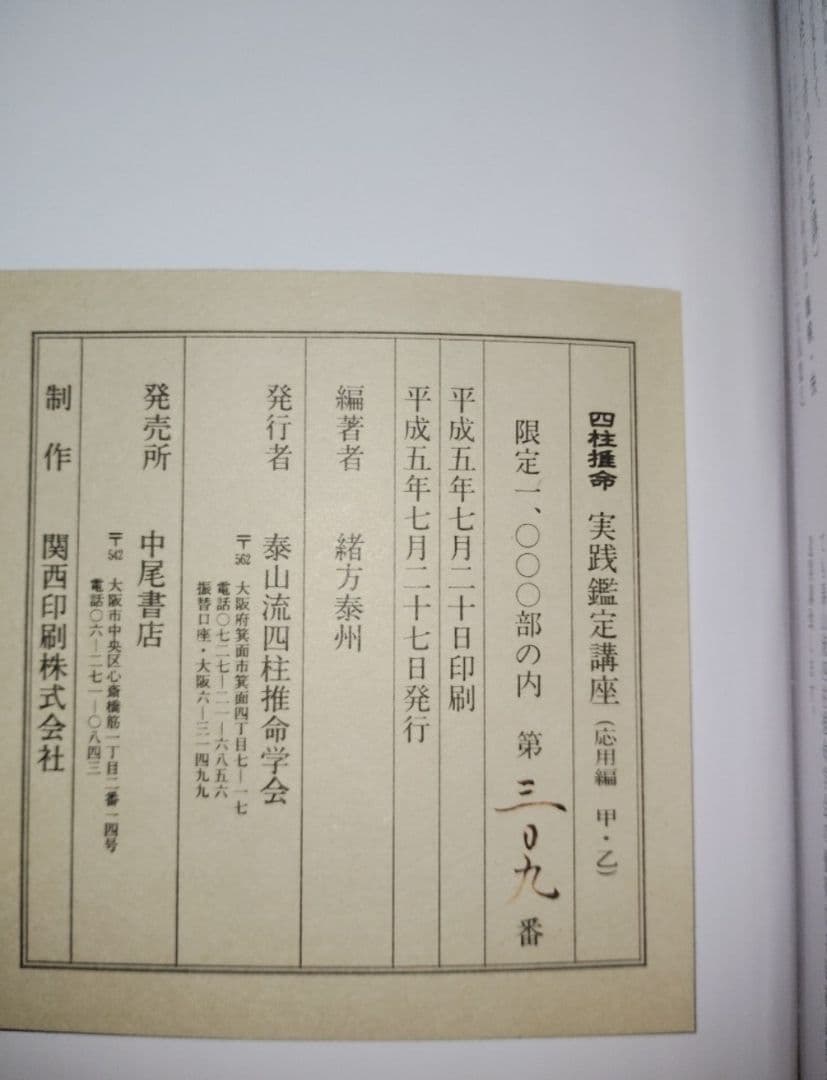 四柱推命 実践鑑定講座（応用編 甲・乙）
限定一、〇〇〇部の内 第三〇九番
平成五年七月二十日印刷
平成五年七月二十七日発行
編著者 緒方泰州
発行者 泰山流四柱推命学会
〒562 大阪府箕面市箕面四丁目七―一七
電話〇七二七―二一―六八五六
振替口座・大阪六―三一四九九
発売所 中尾書店
〒542 大阪市中央区心斎橋筋一丁目二番一四号
電話〇六―二七一―〇八四三
制作 関西印刷株式会社